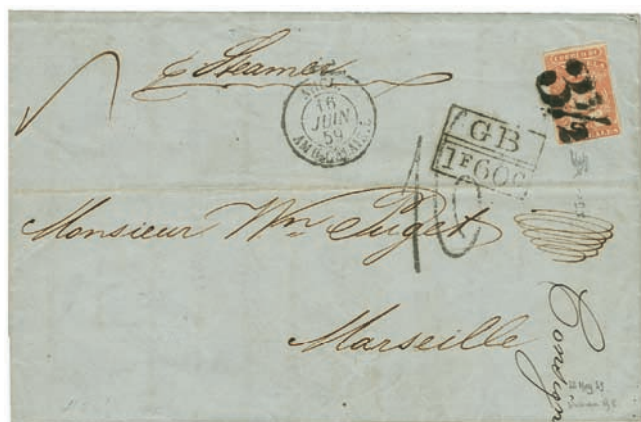 p Steamer
3½
16
JUIN
59
GB
1F60C
10
Monsieur Wm Puget
Marseille
Consign